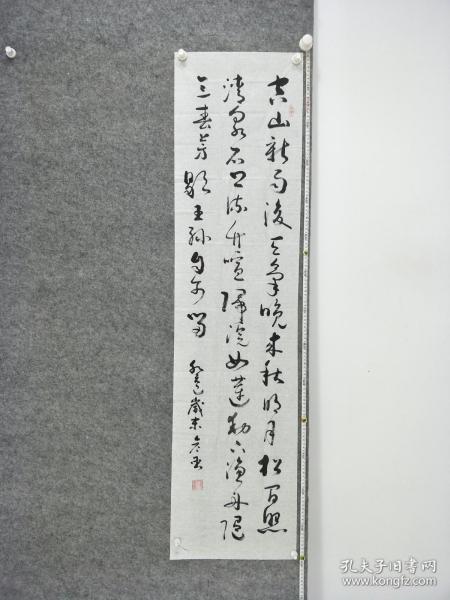 空山新雨後天氣晚来秋明月松間照
清泉石上流竹喧歸浣女蓮動下漁舟隨
意春芳歇王孫自可留
歲末
孔夫子旧书网
www.kongfz.com